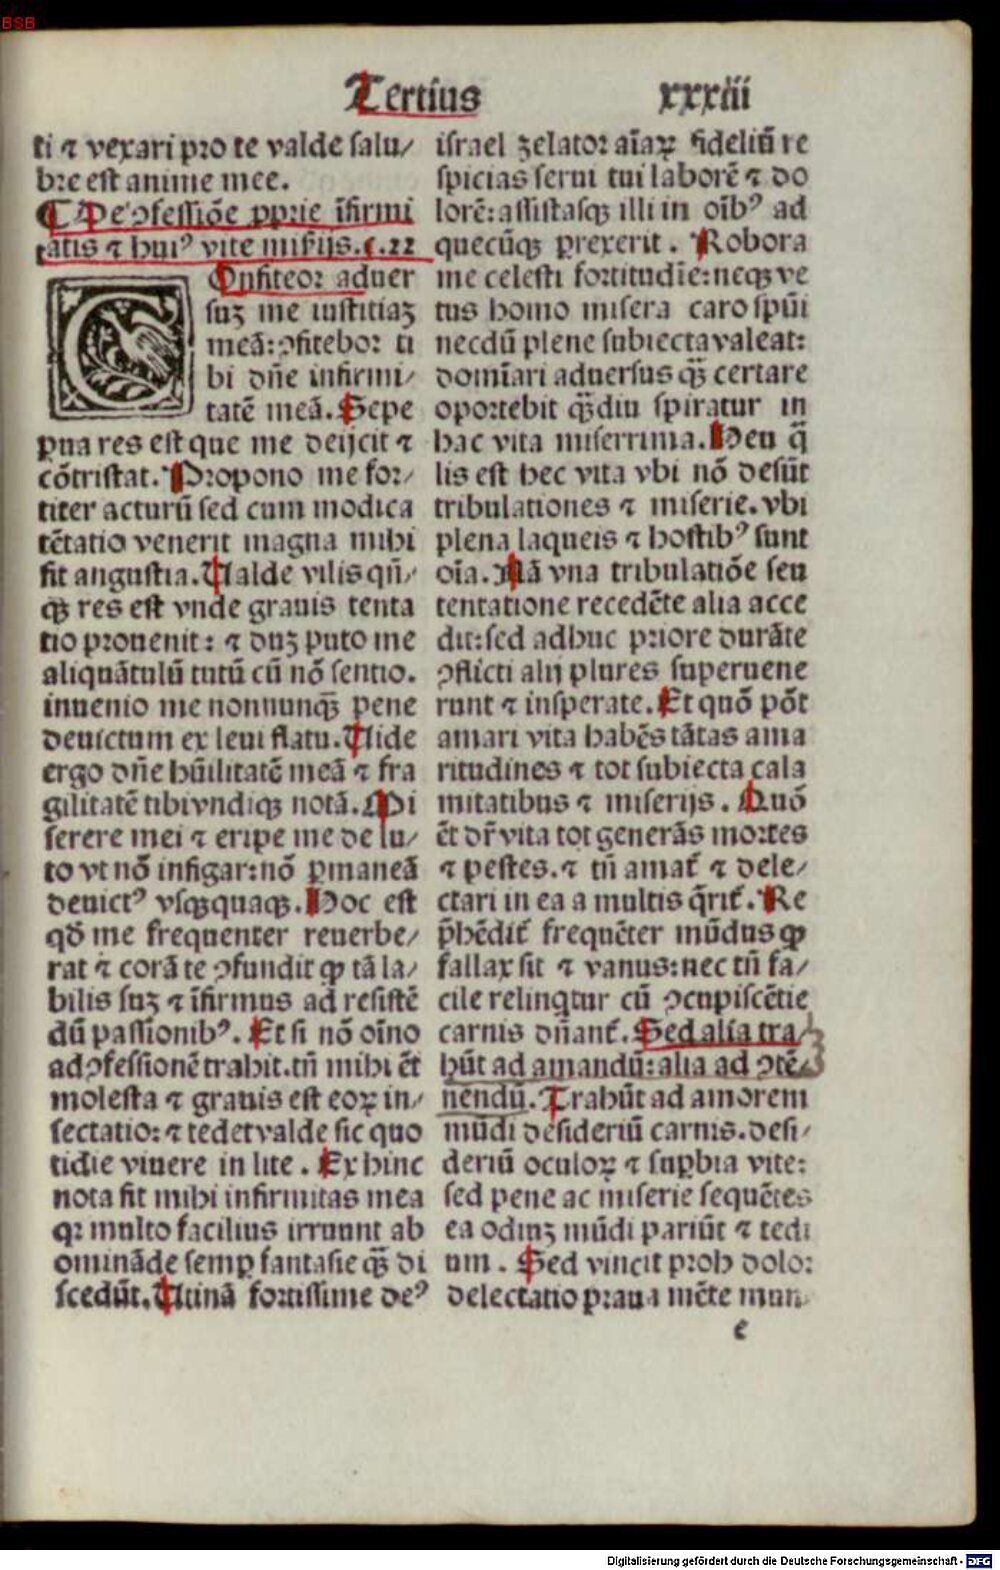 BSB
Tertius xxxiii
ti ⁊ vexari pro te valde salu/
bre est anime mee.
¶ De ꝯfessiōe ꝓprie īfirmi
tatis ⁊ huiꝰ vite miſijs. c. 22
COnfiteor aduer
suꝫ me iustitiaꝫ
meā: ꝯfitebor ti
bi dn̄e infirmi/
tatē meā. Sepe
ꝑua res est que me deijcit ⁊
cōtristat. Propono me for/
titer acturū sed cum modica
tētatio venerit magna mihi
fit angustia. Ualde vilis qn̄/
qꝫ res est vnde grauis tenta
tio prouenit: ⁊ duꝫ puto me
aliquātulū tutū cū nō sentio.
inuenio me nonnunqꝫ̄ pene
deuictum ex leui flatu. Uide
ergo dn̄e hūilitatē meā ⁊ fra
gilitatē tibi vndiqꝫ notā. Mi
serere mei ⁊ eripe me de lu/
to vt nō infigar: nō ꝑmaneā
deuictꝰ vsqꝫquaqꝫ. Hoc est
qd̄ me frequenter reuerbe/
rat ⁊ corā te ꝯfundit ꝙ tā la/
bilis suꝫ ⁊ īfirmus ad resistē
dū passionibꝰ. Et si nō oīno
ad ꝯfessionē trahit. tn̄ mihi ēt
molesta ⁊ grauis est eoꝝ in/
sectatio: ⁊ tedet valde sic quo
tidie viuere in lite. Ex hinc
nota fit mihi infirmitas mea
qꝛ multo facilius irruunt ab
omināde semꝑ fantasie qꝫ̄ di
scedūt. Utinā fortissime deꝰ
israel zelator aīaꝝ fideliū re
spicias serui tui laborē ⁊ do
lorē: assistasqꝫ illi in oībꝰ ad
quecūqꝫ ꝑrexerit. Robora
me celesti fortitudīe: neqꝫ ve
tus homo misera caro spūi
necdū plene subiecta valeat:
domīari aduersus qꝫ̄ certare
oportebit qꝫ̄diu spiratur in
hac vita miserrima. Heu q̄
lis est hec vita vbi nō desūt
tribulationes ⁊ miserie. vbi
plena laqueis ⁊ hostibꝰ sunt
oīa. Nā vna tribulatiōe seu
tentatione recedēte alia acce
dit: sed adhuc priore durāte
ꝯflictu alij plures superuene
runt ⁊ insperate. Et quō pōt
amari vita habēs tātas ama
ritudines ⁊ tot subiecta cala
mitatibus ⁊ miserijs. Quō
ēt dr̄ vita tot generās mortes
⁊ pestes. ⁊ tn̄ amat̄ ⁊ dele/
ctari in ea a multis q̄rit̄. Re
p̄hēdit̄ frequēter mūdus ꝙ
fallax sit ⁊ vanus: nec tn̄ fa/
cile relinqtur cū ꝯcupiscētie
carnis dn̄ant̄. Sed alia tra/
hūt ad amandū: alia ad ꝯtē/
nendū. Trahūt ad amorem
mūdi desideriū carnis. desi/
deriū oculoꝝ ⁊ suꝑbia vite:
sed pene ac miserie sequētes
ea odiuꝫ mūdi pariūt ⁊ tedi
um. Sed vincit proh dolor
delectatio praua mēte mun
e
Digitalisierung gefördert durch die Deutsche Forschungsgemeinschaft - DFG